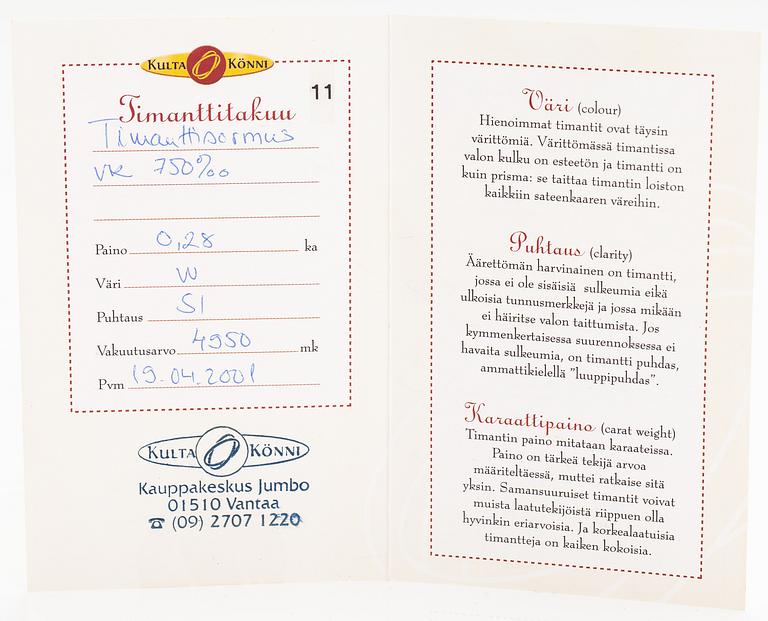 KULTA KÖNNI
11
Timanttitakuu
Timanttisormus
vk 750‰
Paino 0,28 ka
Väri W
Puhtaus SI
Vakuutusarvo 4950 mk
Pvm 19.04.2001
KULTA KÖNNI
Kauppakeskus Jumbo
01510 Vantaa
☎ (09) 2707 1220
Väri (colour)
Hienoimmat timantit ovat täysin
värittömiä. Värittömässä timantissa
valon kulku on esteetön ja timantti on
kuin prisma: se taittaa timantin loiston
kaikkiin sateenkaaren väreihin.
Puhtaus (clarity)
Äärettömän harvinainen on timantti,
jossa ei ole sisäisiä sulkeumia eikä
ulkoisia tunnusmerkkejä ja jossa mikään
ei häiritse valon taittumista. Jos
kymmenkertaisessa suurennoksessa ei
havaita sulkeumia, on timantti puhdas,
ammattikielellä "luuppipuhdas".
Karaattipaino (carat weight)
Timantin paino mitataan karaateissa.
Paino on tärkeä tekijä arvoa
määriteltäessä, muttei ratkaise sitä
yksin. Samansuuruiset timantit voivat
muista laatutekijöistä riippuen olla
hyvinkin eriarvoisia. Ja korkealaatuisia
timantteja on kaiken kokoisia.